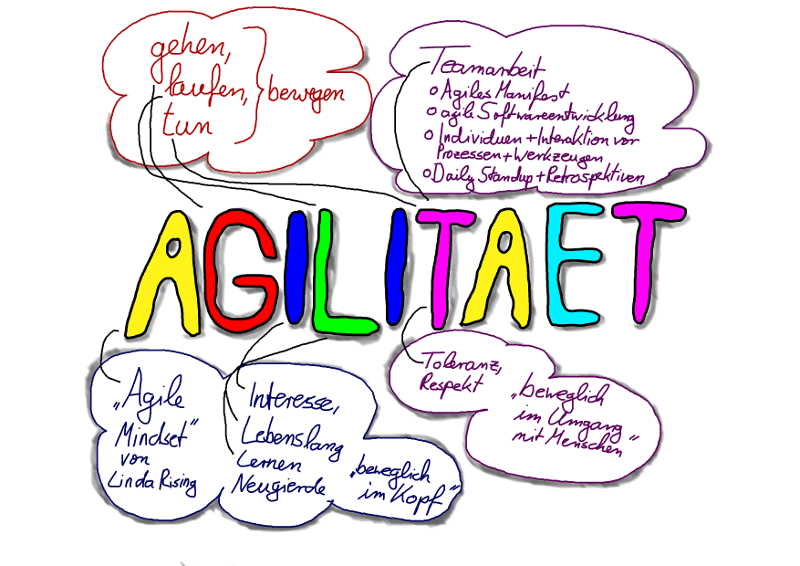 gehen,
laufen,
tun
bewegen
Teamarbeit
o Agiles Manifest
o agile Softwareentwicklung
o Individuen + Interaktion vor
Prozessen + Werkzeugen
o Daily Standup + Retrospektiven
AGILITAET
„Agile
Mindset"
von
Linda Rising
Interesse,
Lebenslang
Lernen
Neugierde
„beweglich
im Kopf"
Toleranz,
Respekt
„beweglich
im Umgang
mit Menschen"